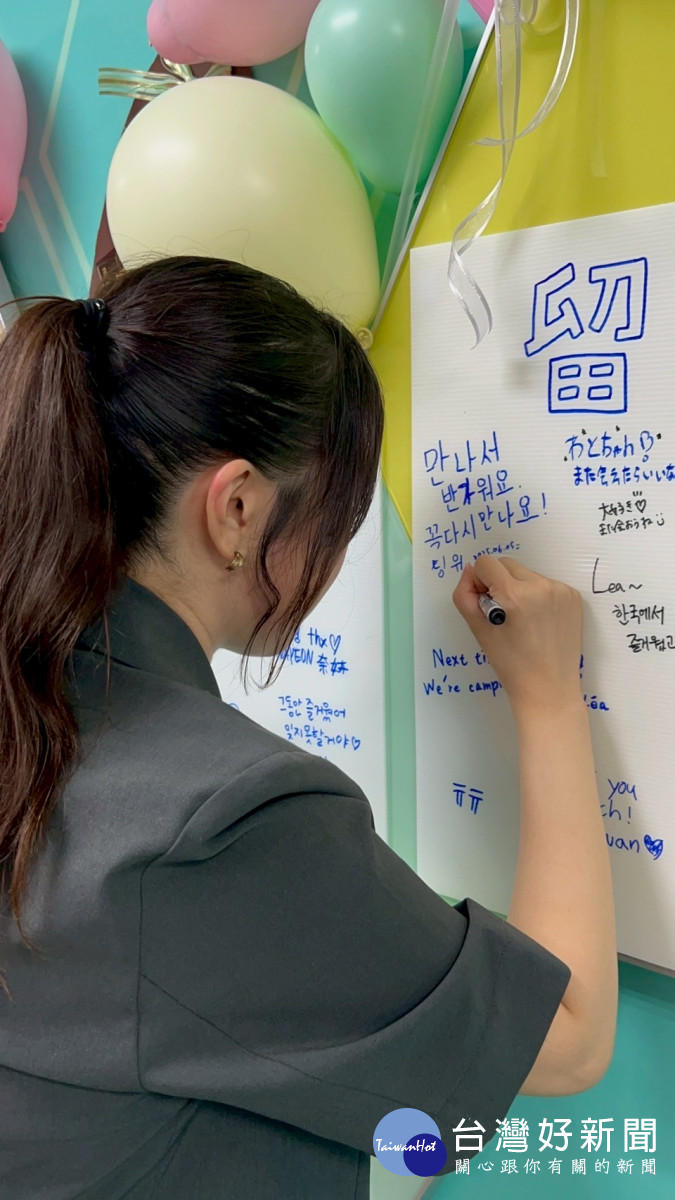 留
만나서
반가워요.
꼭다시만나요!
팅위
おとちゃん
また会えたらいいな
大好き♡
また会おうね
Lea~
한국에서
즐거웠고
Next ti
We're camp
ㅠㅠ
you
ch!
uan
thx♡
YEON 奈妹
그동안 즐거웠어
잊지못할거야♡
TaiwanHot
台灣好新聞
關心跟你有關的新聞